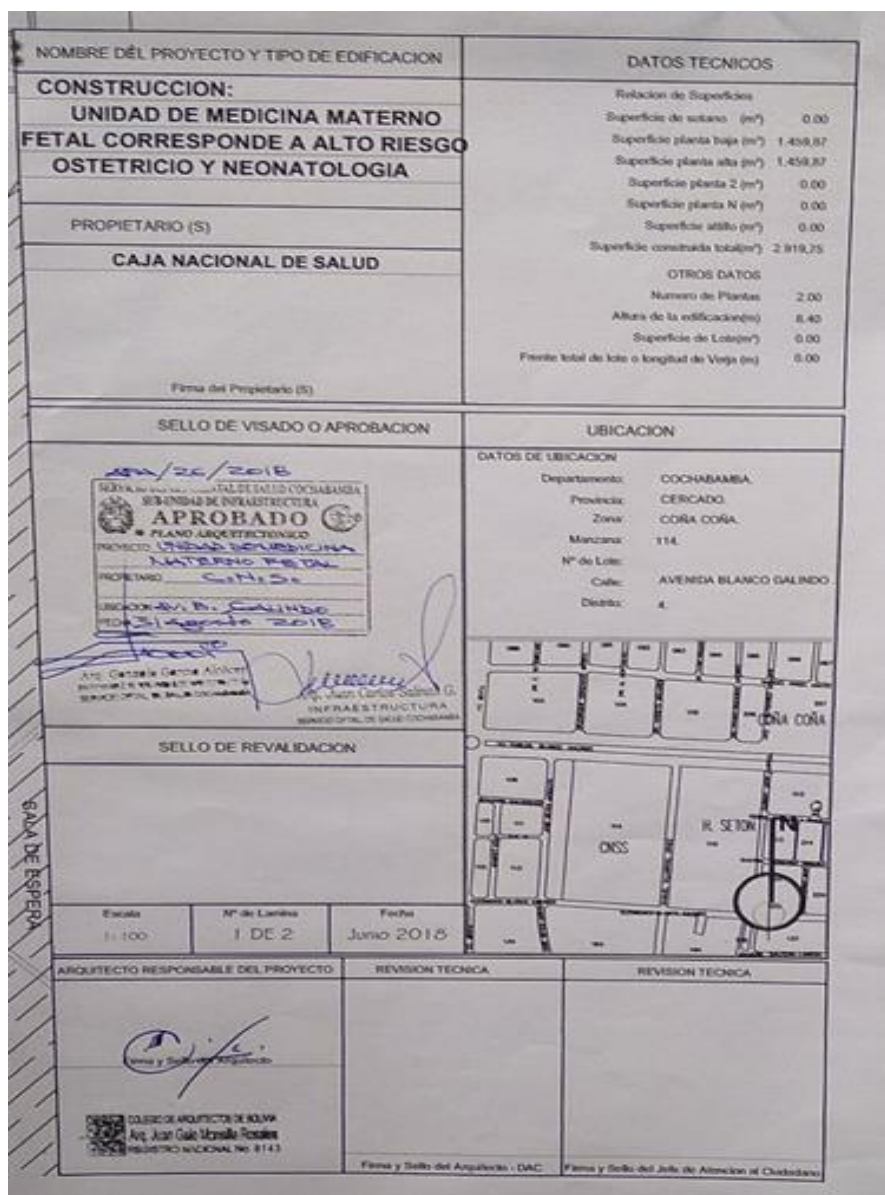 NOMBRE DEL PROYECTO Y TIPO DE EDIFICACION
CONSTRUCCION:
UNIDAD DE MEDICINA MATERNO
FETAL CORRESPONDE A ALTO RIESGO
OSTETRICIO Y NEONATOLOGIA
PROPIETARIO (S)
CAJA NACIONAL DE SALUD
Firma del Propietario (S)
DATOS TECNICOS
Relacion de Superficies
Superficie de sotano (m²) 0.00
Superficie planta baja (m²) 1.459,87
Superficie planta alta (m²) 1.459,87
Superficie planta 2 (m²) 0.00
Superficie planta N (m²) 0.00
Superficie altillo (m²) 0.00
Superficie construida total(m²) 2.919,75
OTROS DATOS
Numero de Plantas 2.00
Altura de la edificacion(m) 8.40
Superficie de Lote(m²) 0.00
Frente total de lote o longitud de Verja (m) 0.00
SELLO DE VISADO O APROBACION
/26/2018
SUB-UNIDAD DE INFRAESTRUCTURA
APROBADO
PLANO ARQUITECTONICO
PROYECTO UNIDAD DE MEDICINA
MATERNO FETAL
PROPIETARIO C.N.S.
UBICACION AV. B. GALINDO
31 agosto 2018
Arq. Gonzalo Garcia
Juan Carlos G.
INFRAESTRUCTURA
SERVICIO DPTAL. DE SALUD COCHABAMBA
UBICACION
DATOS DE UBICACION
Departamento: COCHABAMBA.
Provincia: CERCADO.
Zona: COÑA COÑA.
Manzana: 114.
Nº de Lote:
Calle: AVENIDA BLANCO GALINDO.
Distrito: 4.
COÑA COÑA
CNSS
R. SETON
N
SELLO DE REVALIDACION
SALA DE ESPERA
Escala
1:100
Nº de Lamina
1 DE 2
Fecha
Junio 2018
ARQUITECTO RESPONSABLE DEL PROYECTO
Firma y Sello del Arquitecto
COLEGIO DE ARQUITECTOS DE BOLIVIA
Arq. Juan Galo Mansilla Rosales
REGISTRO NACIONAL No. 8143
REVISION TECNICA
Firma y Sello del Arquitecto - DAC
REVISION TECNICA
Firma y Sello del Jefe de Atencion al Ciudadano